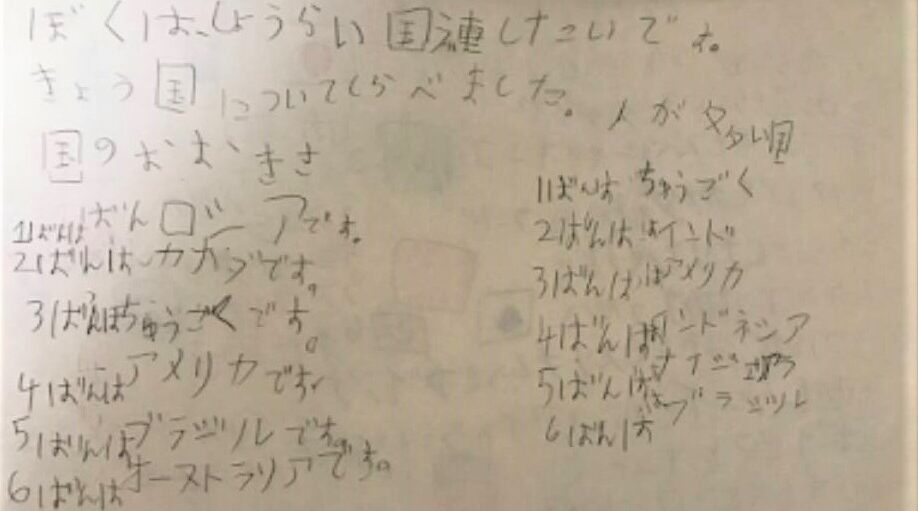 ぼくは、しょうらい国連したいです。
きょう国についてしらべました。
国のおおきさ
1ばんはばんロシーアです。
2ばんはカナダです。
3ばんはちゅうごくです。
4ばんはアメリカです
5ばんはブラジルです。
6ばんはオーストラリアです。
人が多い国
1ばんはちゅうごく
2ばんはインド
3ばんはアメリカ
4ばんはインドネシア
5ばんはナイジ
6ばんはブラジル